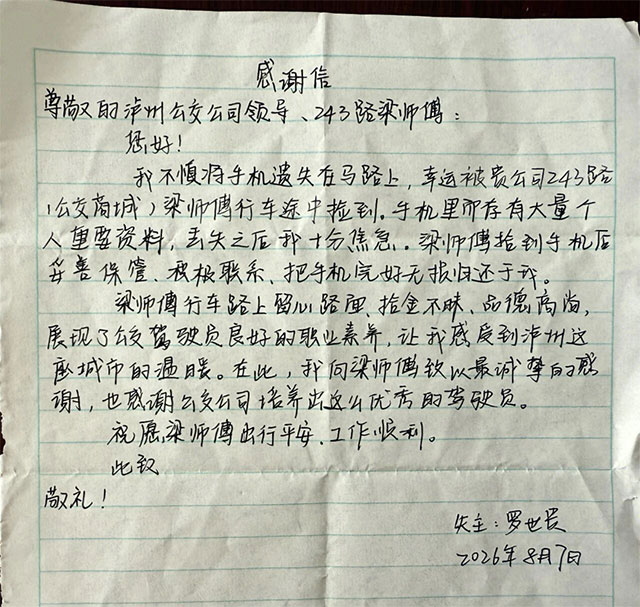 感谢信
尊敬的泸州公交公司领导、243路梁师傅：
您好！
我不慎将手机遗失在马路上，幸运被贵公司243路
（公交商城）梁师傅行车途中捡到。手机里面存有大量个
人重要资料，丢失之后我十分焦急。梁师傅捡到手机后
妥善保管、积极联系、把手机完好无损归还于我。
梁师傅行车路上留心路面、拾金不昧、品德高尚，
展现了公交驾驶员良好的职业素养，让我感受到泸州这
座城市的温暖。在此，我向梁师傅致以最诚挚的感
谢，也感谢公交公司培养出这么优秀的驾驶员。
祝愿梁师傅出行平安、工作顺利。
此致
敬礼！
失主：罗世贵
2026年8月7日